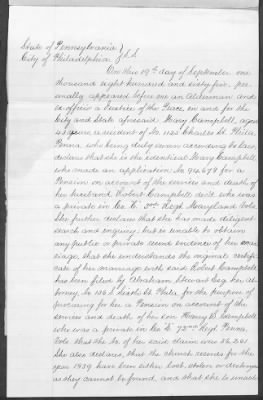 State of Pennsylvania } S.S.
City of Philadelphia }
On this 19th day of September one
thousand eight hundred and sixty five, per-
sonally appeared before me an Alderman and
ex officio a Justice of the Peace, in and for the
City and State aforesaid Mary Campbell, aged
years, a resident of No. 1122 Charles St. Phila.
Penna. who being duly sworn according to law,
declares that she is the identical Mary Campbell
who made an application No. 96,678 for a
Pension on account of the services and death of
her husband Robert Campbell dec'd. who was
a private in Co. E. 2nd Regt. Maryland Vols.
She further declares that she has made diligent
search and enquiry, but is unable to obtain
any public or private record evidence of her mar-
riage, that she understands the original certifi-
cate of her marriage with said Robert Campbell
has been filed by Abraham Stewart Esq. an at-
torney, No. 136 S. Sixth St. Phila. for the purpose of
procuring for her a Pension on account of the
services and death of her son Henry C. Campbell
who was a private in Co. E. 72nd Regt. Penna.
Vols. that the No. of her said claim is 36,261.
She also declares, that the church records for the
year 1839 have been either lost, stolen or destroyed
as they cannot be found, and that she is unable